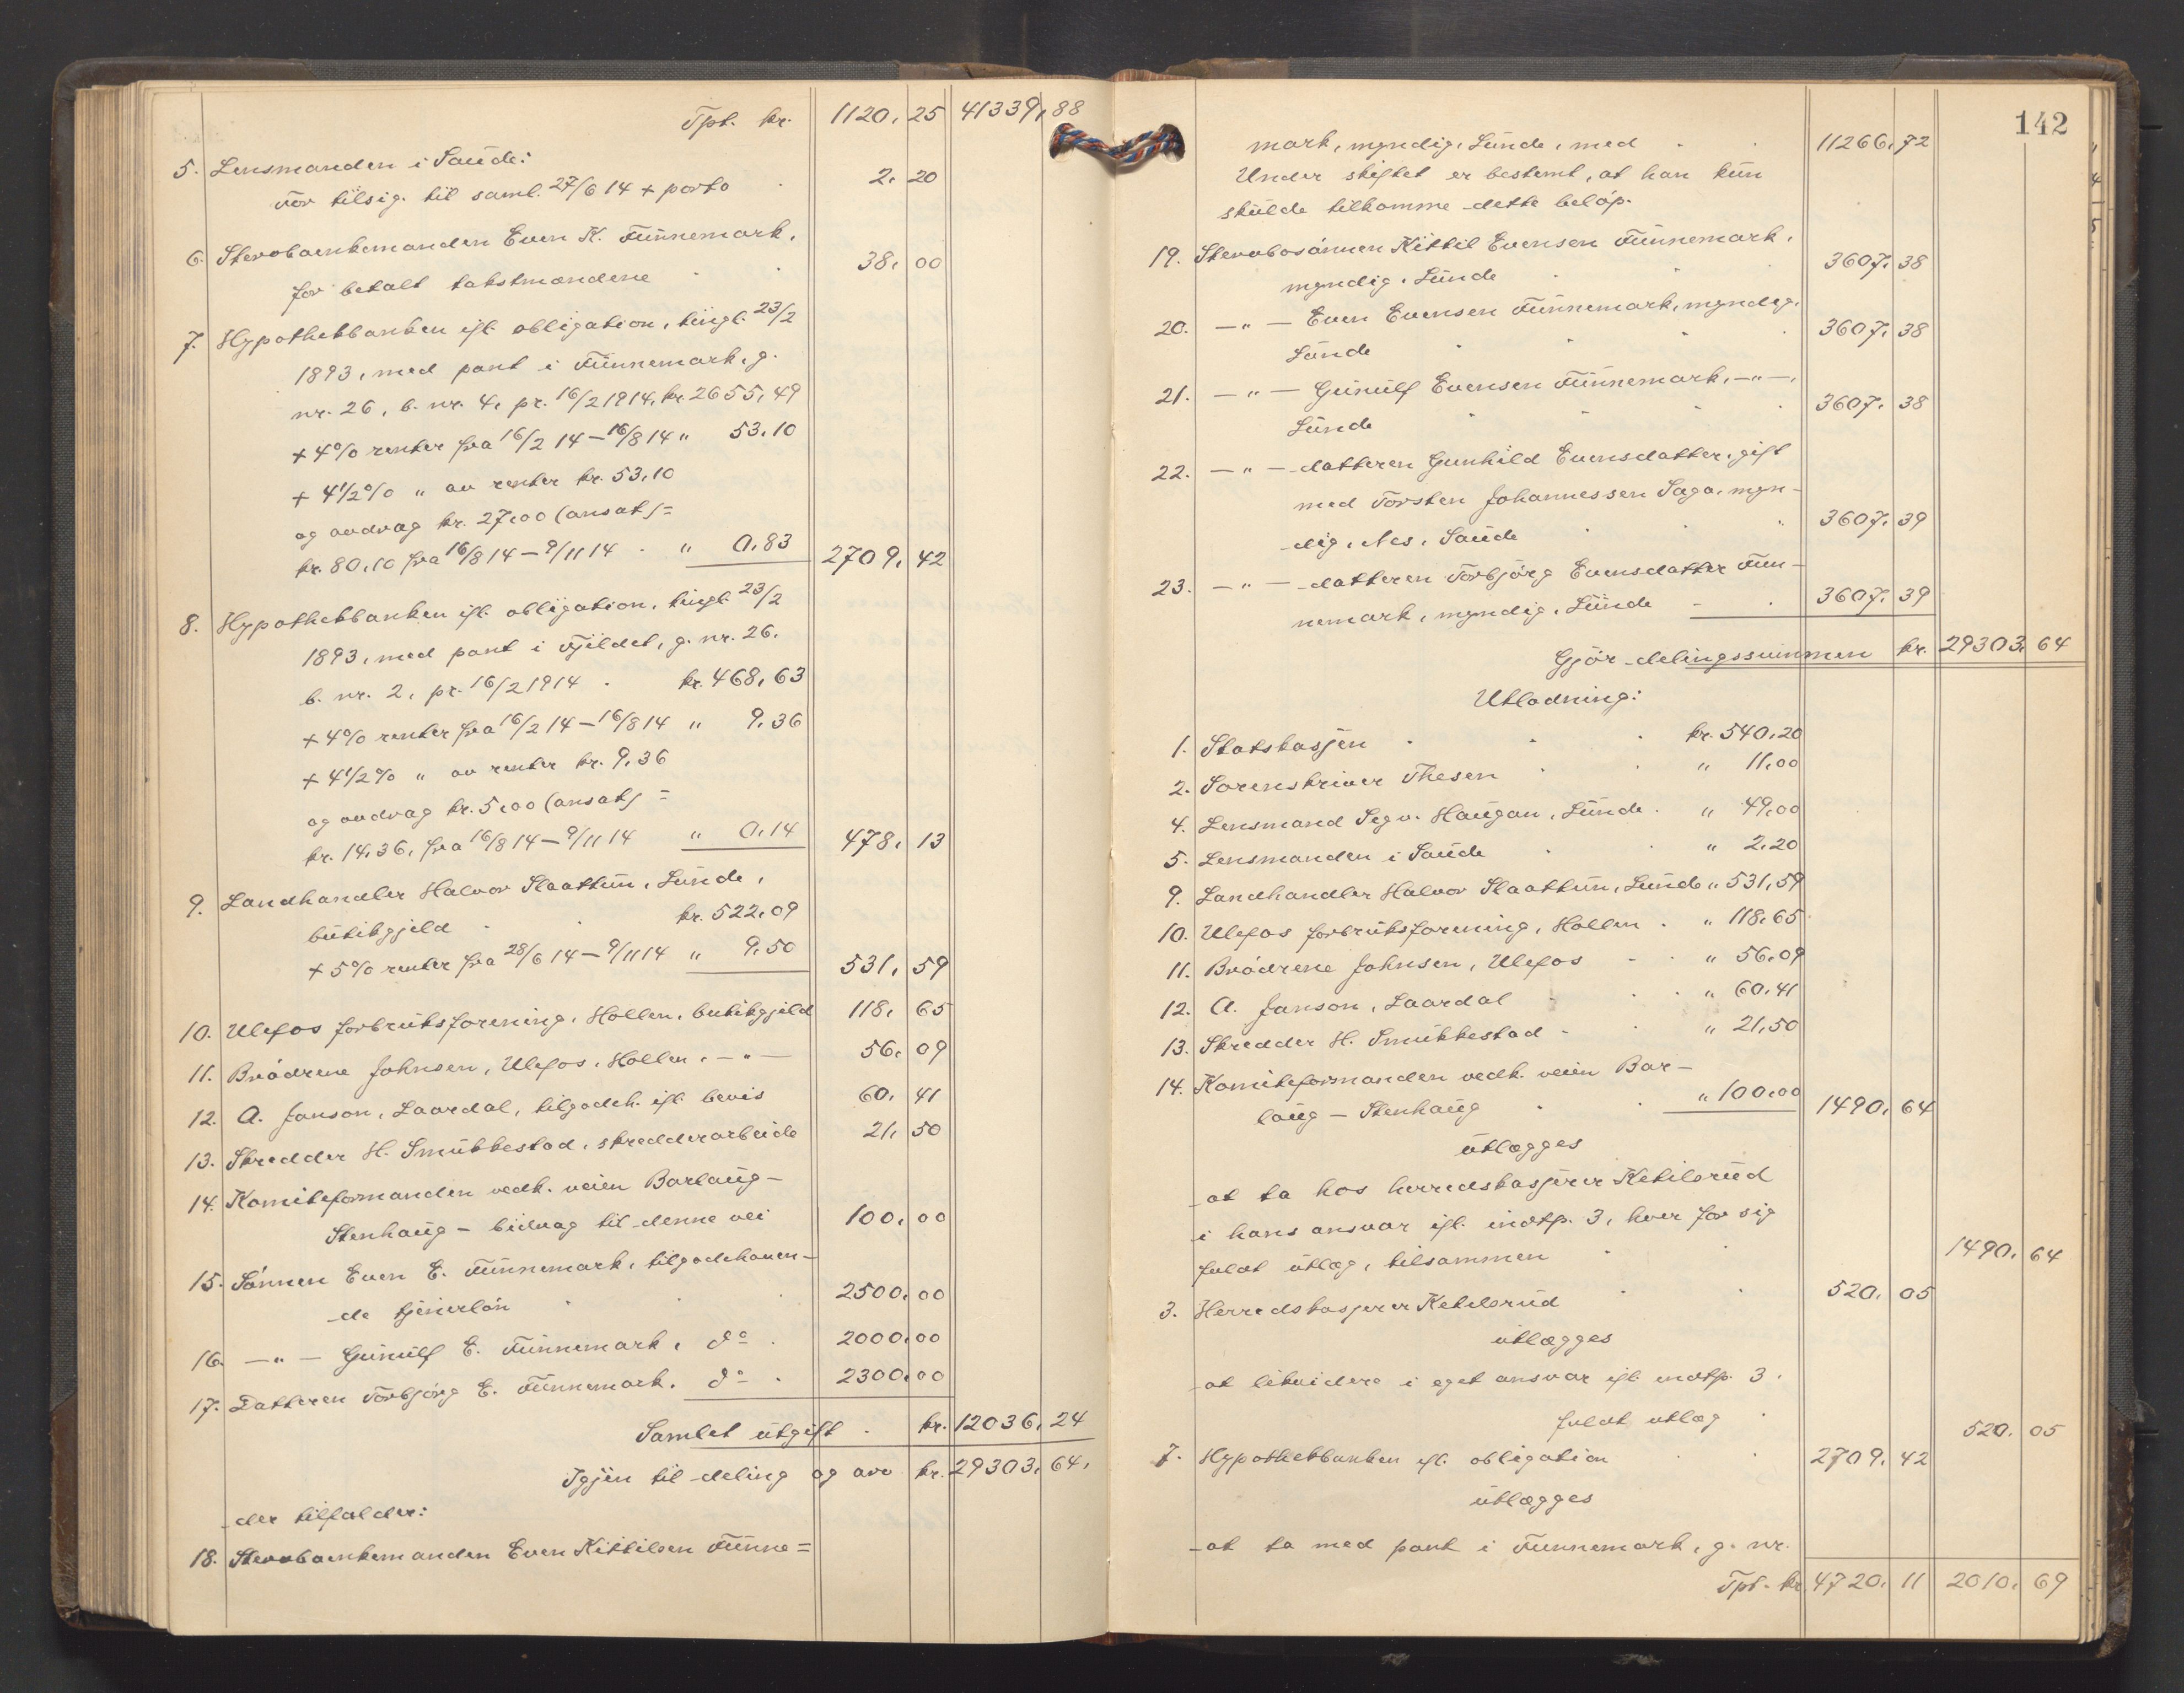 Tpt. kr. 1120, 25 41339, 88
5. Lensmanden i Saude:
For tilsig. til saml. 27/6 14 + porto . 2, 20
6. Stervboenkemanden Even K. Funnemark,
for betalt takstmændene . . 38, 00
7. Hypothekbanken ifl. obligation, tingl. 23/2
1893, med pant i Funnemark, g.
nr. 26, b. nr. 4, pr. 16/2 1914, kr. 2655,49
+ 4% renter fra 16/2 14 – 16/8 14 " 53,10
+ 4 1/2 % " av renter kr. 53,10
og avdrag kr. 27,00 (ansat) =
kr. 80,10 fra 16/8 14 – 9/11 14 . " 0,83 2709, 42
8. Hypothekbanken ifl. obligation, tingl. 23/2
1893, med pant i Fjeldet, g. nr. 26,
b. nr. 2, pr. 16/2 1914 . kr. 468,63
+ 4% renter fra 16/2 14 – 16/8 14 " 9,36
+ 4 1/2 % " av renter kr. 9,36
og avdrag kr. 5,00 (ansat) =
kr. 14,36, fra 16/8 14 – 9/11 14 " 0,14 478, 13
9. Landhandler Halvor Slaattun, Lunde,
butikgjeld . . kr. 522,09
+ 5% renter fra 28/6 14 – 9/11 14 " 9,50 531, 59
10. Ulefos forbruksforening, Hollen, butikgjeld 118, 65
11. Brødrene Johnsen, Ulefos, Hollen, – " – 56, 09
12. A. Janson, Laardal, tilgodeh. ifl. bevis 60, 41
13. Skredder H. Smukkestad, skredderarbeide 21, 50
14. Komiteformanden vedk. veien Barlaug –
Stenhaug – bidrag til denne vei 100, 00
15. Sønnen Even E. Funnemark, tilgodehaven-
de tjenerløn . . . 2500, 00
16. – " – Gunulf E. Funnemark, do . 2000, 00
17. Datteren Torbjørg E. Funnemark, do . 2300, 00
Samlet utgift . kr. 12036, 24
Igjen til deling og arv kr. 29303, 64,
der tilfalder:
18. Stervboenkemanden Even Kittilsen Funne=
142
mark, myndig, Lunde, med . . 11266, 72
Under skiftet er bestemt, at han kun
skulde tilkomme dette beløp.
19. Stervbosønnen Kittil Evensen Funnemark,
myndig, Lunde . . . 3607, 38
20. – " – Even Evensen Funnemark, myndig,
Lunde . . . 3607, 38
21. – " – Gunulf Evensen Funnemark, – " –,
Lunde . . . . 3607, 38
22. – " – datteren Gunhild Evensdatter, gift
med Torsten Johannessen Saga, myn-
dig, Nes, Saude . . " 3607, 39
23. – " – datteren Torbjørg Evensdatter Fun-
nemark, myndig, Lunde . . 3607, 39
Gjør delingssummen kr. 29303, 64
Utlodning:
1. Statskassen . . . kr. 540,20
2. Sorenskriver Thesen . . " 11,00
4. Lensmand Segv. Haugan, Lunde . " 49,00
5. Lensmanden i Saude . . " 2,20
9. Landhandler Halvor Slaattun, Lunde " 531,59
10. Ulefos forbruksforening, Hollen . " 118,65
11. Brødrene Johnsen, Ulefos . . " 56,09
12. A. Janson, Laardal . . . " 60,41
13. Skredder H. Smukkestad . . " 21,50
14. Komiteformanden vedk. veien Bar-
laug – Stenhaug . . " 100,00 1490, 64
utlægges
at ta hos herredskasserer Ketilsrud
i hans ansvar ifl. indtp. 3, hver for sig
fuldt utlæg, tilsammen . . 1490, 64
3. Herredskasserer Ketilsrud . . 520, 05
utlægges
at likvidere i eget ansvar ifl. indtp. 3,
fuldt utlæg . 520, 05
7. Hypothekbanken ifl. obligation . . 2709, 42
utlægges
at ta med pant i Funnemark, g. nr.
Tpt. kr. 4720, 11 2010, 69